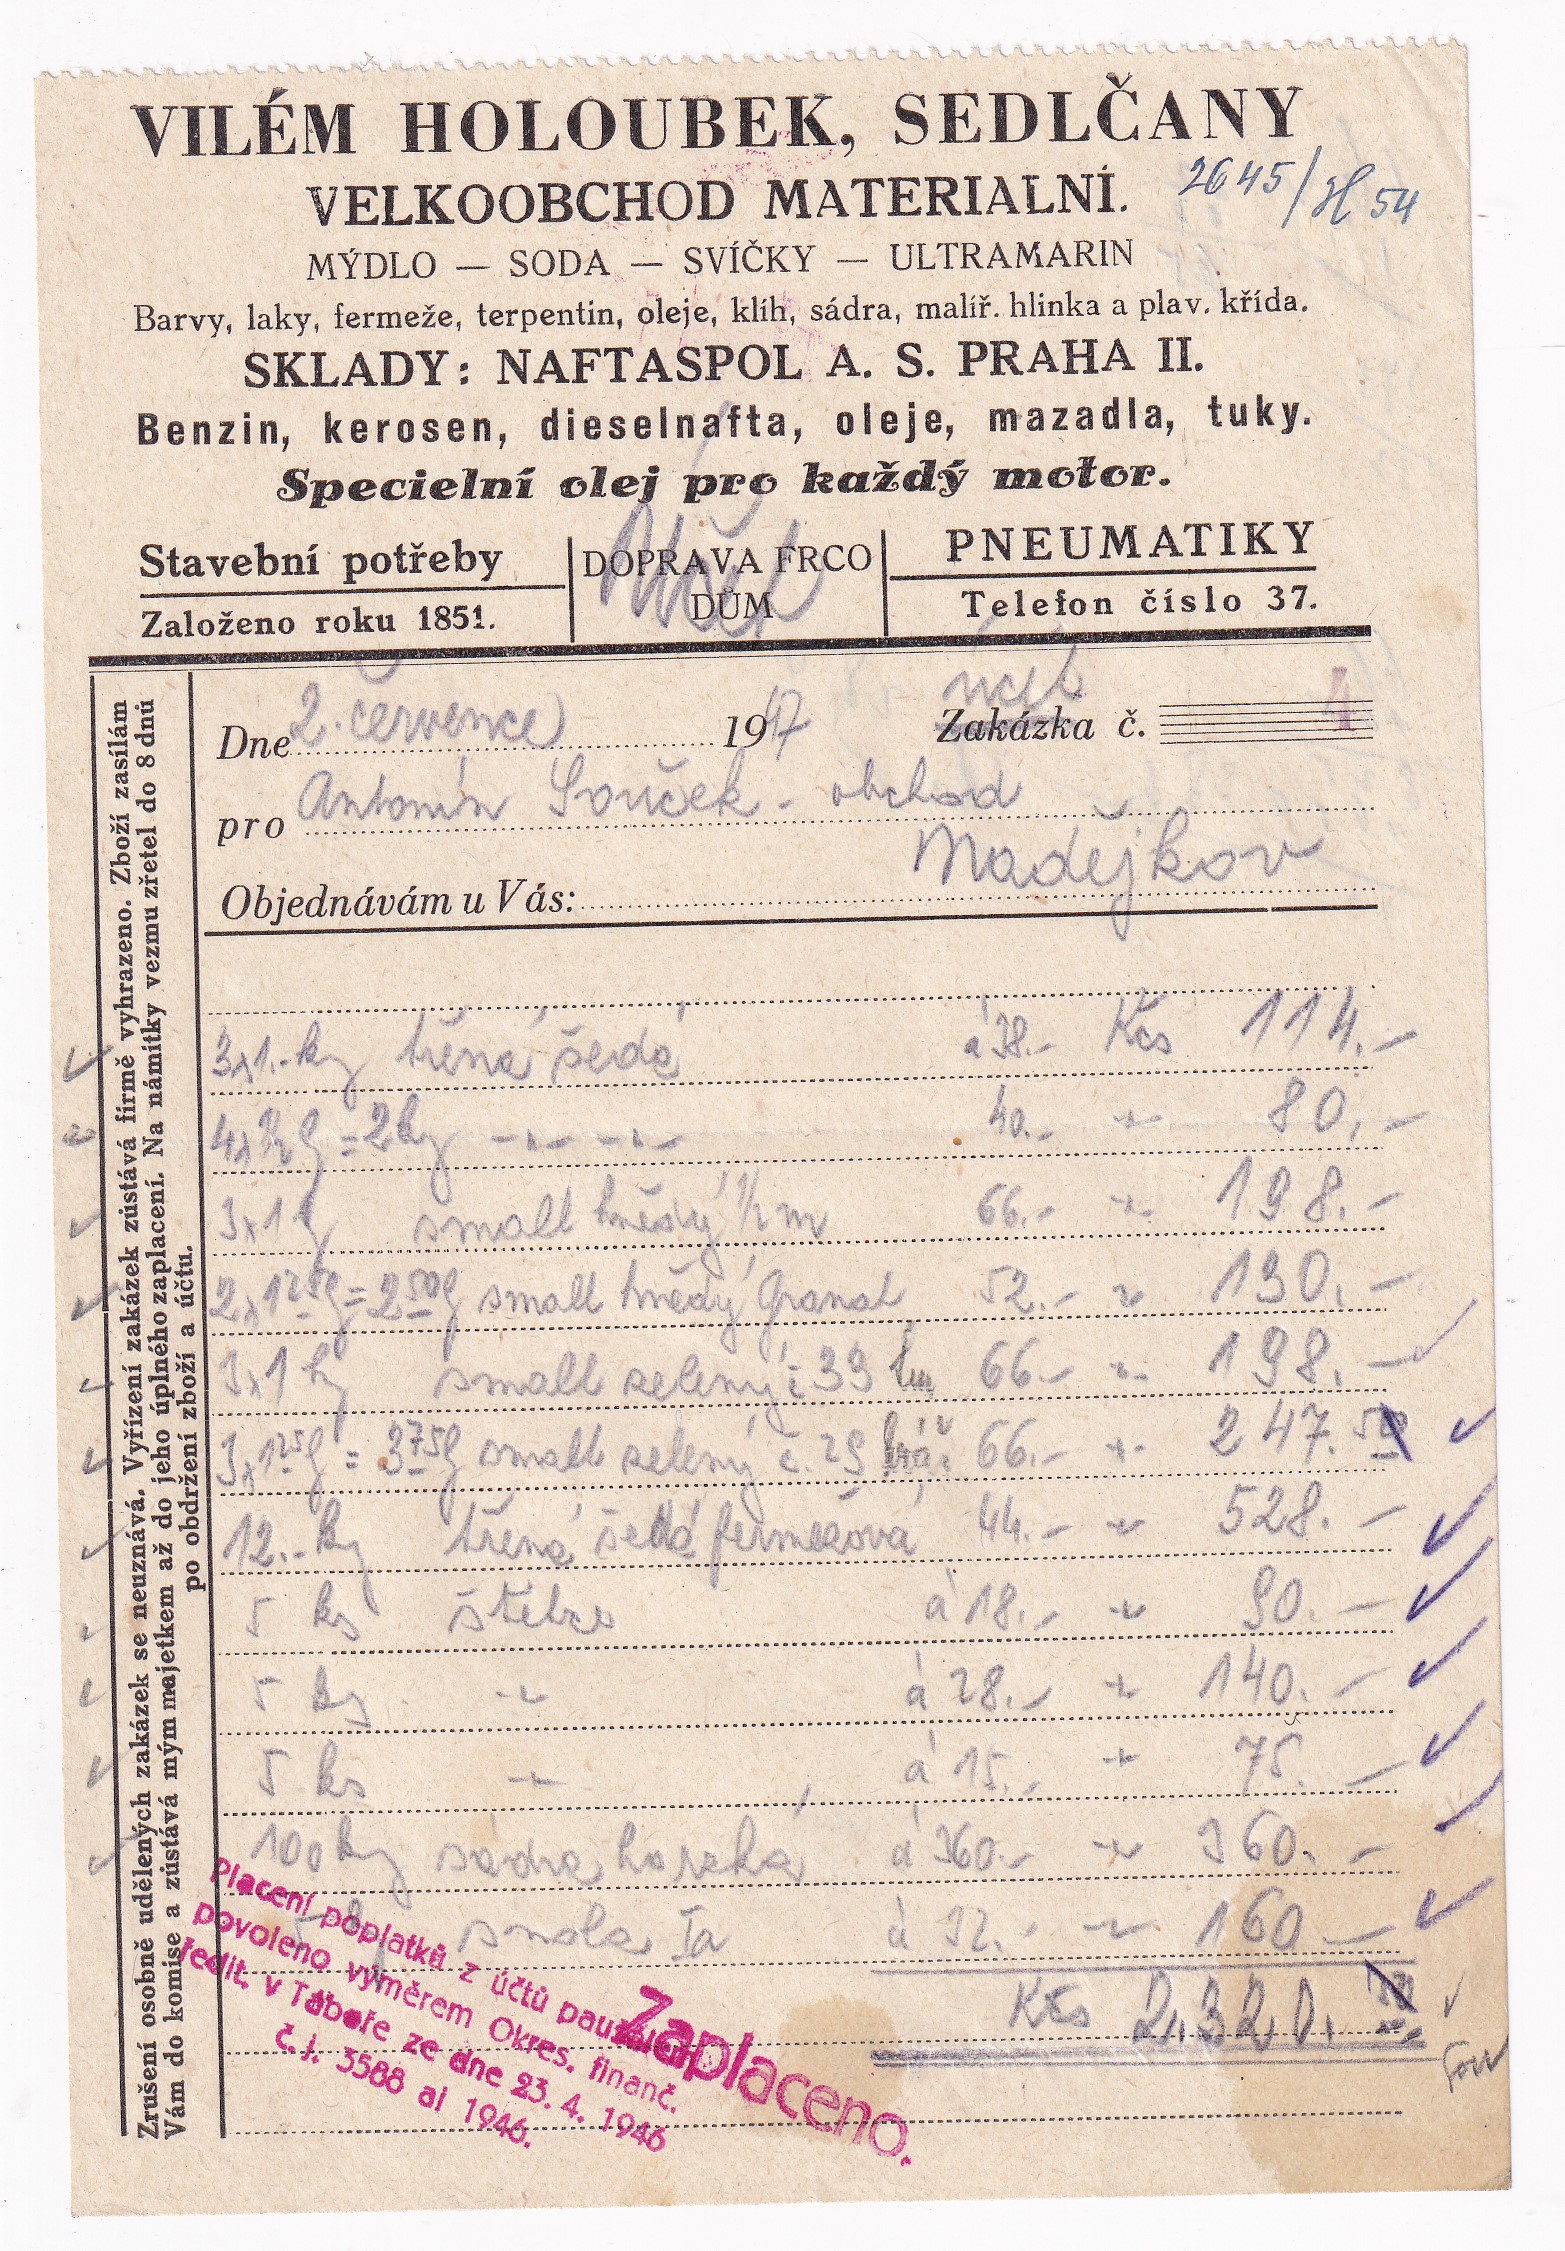 VILÉM HOLOUBEK, SEDLČANY
VELKOOBCHOD MATERIALNÍ.
2645/H 54
MÝDLO — SODA — SVÍČKY — ULTRAMARIN
Barvy, laky, fermeže, terpentin, oleje, klíh, sádra, malíř. hlinka a plav. křída.
SKLADY: NAFTASPOL A. S. PRAHA II.
Benzin, kerosen, dieselnafta, oleje, mazadla, tuky.
Specielní olej pro každý motor.
Stavební potřeby
Založeno roku 1851.
DOPRAVA FRCO
DŮM
Účet
PNEUMATIKY
Telefon číslo 37.
Dne 2. července 1947 účet Zakázka č. 4
pro Antonín Souček - obchod
Objednávám u Vás: Nadějkov
3x1.- kg třená šedá á 38.- Kčs 114.-
4x½ kg = 2 kg -"- -"- 40.- " 80.-
3x1 kg smalt hnědý ½ m 66.- " 198.-
2x1 25 kg = 2 50 kg smalt hnědý Granat 52.- " 130.-
3x1 kg smalt zelený č 39 66.- " 198.-
3x1 25 kg = 3 75 kg smalt zelený č. 29 66.- " 247.50
12.- kg třená šedá fermežová 44.- " 528.-
5 ks štětce á 18.- " 90.-
5 ks " á 28.- " 140.-
5 ks " á 15.- " 75.-
100 kg sádra horská á 360.- " 360.-
5 kg smola Ia á 32.- " 160.-
Kčs 2.320.50
Placení poplatků z účtů paušálem
povoleno výměrem Okres. finanč.
ředit. v Táboře ze dne 23. 4. 1946
č. j. 3588 ai 1946.
Zaplaceno.
Zrušení osobně udělených zakázek se neuznává. Vyřízení zakázek zůstává firmě vyhrazeno. Zboží zasílám
Vám do komise a zůstává mým majetkem až do jeho úplného zaplacení. Na námitky vezmu zřetel do 8 dnů
po obdržení zboží a účtu.